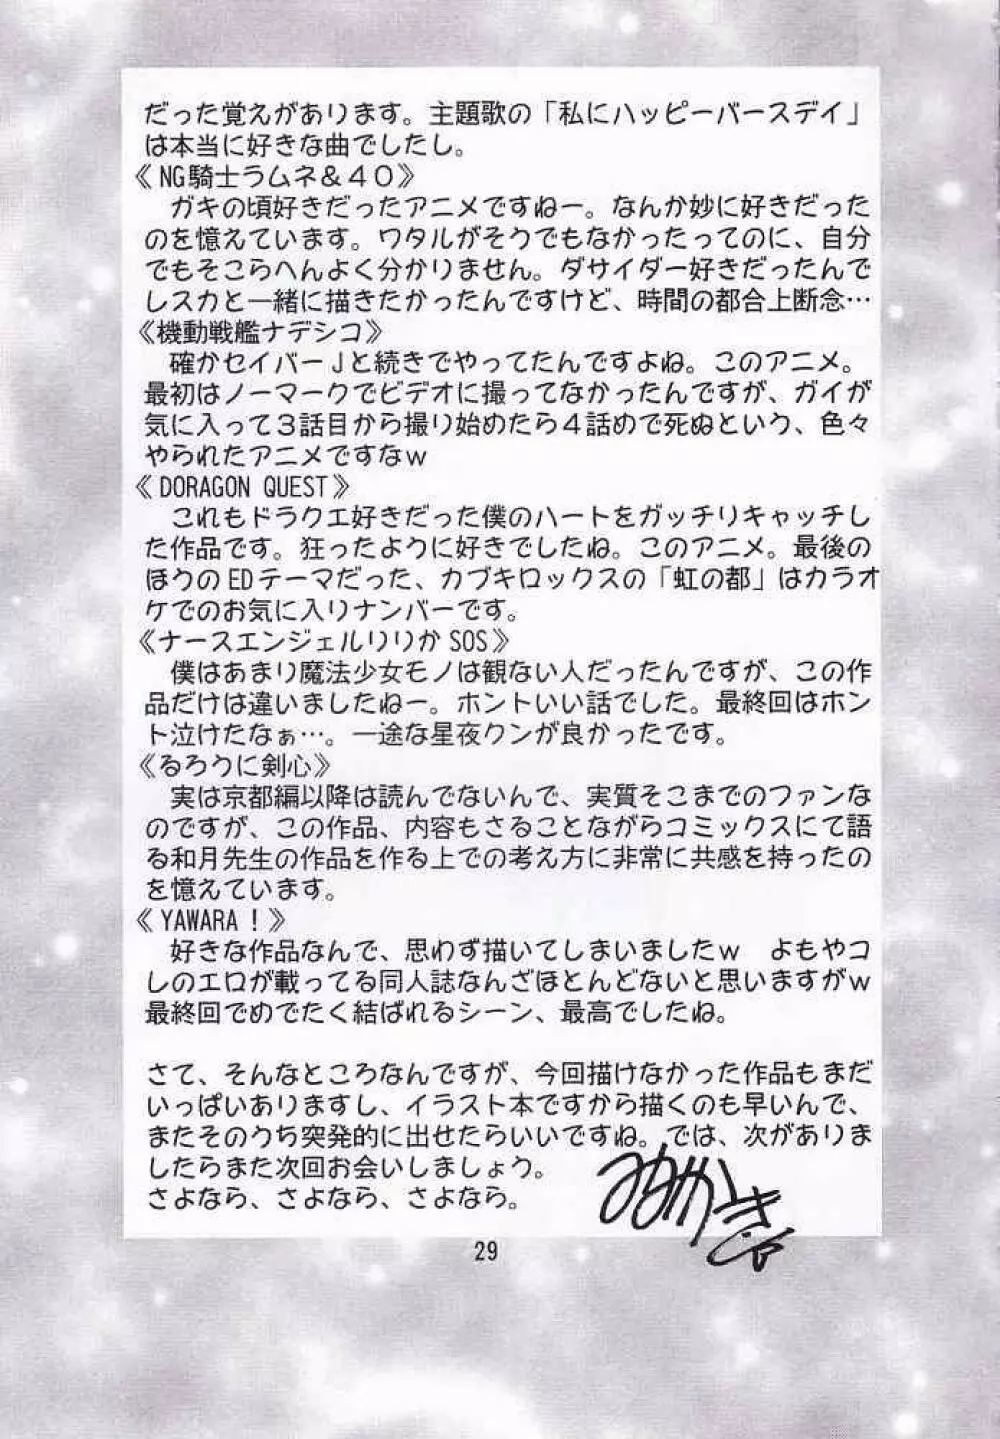 だった覚えがあります。主題歌の「私にハッピーバースデイ」
は本当に好きな曲でしたし。
《NG騎士ラムネ＆４０》
ガキの頃好きだったアニメですねー。なんか妙に好きだった
のを憶えています。ワタルがそうでもなかったってのに、自分
でもそこらへんよく分かりません。ダサイダー好きだったんで
レスカと一緒に描きたかったんですけど、時間の都合上断念…
《機動戦艦ナデシコ》
確かセイバーＪと続きでやってたんですよね。このアニメ。
最初はノーマークでビデオに撮ってなかったんですが、ガイが
気に入って３話目から撮り始めたら４話めで死ぬという、色々
やられたアニメですなｗ
《DORAGON QUEST》
これもドラクエ好きだった僕のハートをガッチリキャッチし
た作品です。狂ったように好きでしたね。このアニメ。最後の
ほうのEDテーマだった、カブキロックスの「虹の都」はカラオ
ケでのお気に入りナンバーです。
《ナースエンジェルりりかSOS》
僕はあまり魔法少女モノは観ない人だったんですが、この作
品だけは違いましたねー。ホントいい話でした。最終回はホン
ト泣けたなぁ…。一途な星夜クンが良かったです。
《るろうに剣心》
実は京都編以降は読んでないんで、実質そこまでのファンな
のですが、この作品、内容もさることながらコミックスにて語
る和月先生の作品を作る上での考え方に非常に共感を持ったの
を憶えています。
《YAWARA！》
好きな作品なんで、思わず描いてしまいましたｗ　よもやコ
レのエロが載ってる同人誌なんざほとんどないと思いますがｗ
最終回でめでたく結ばれるシーン、最高でしたね。
さて、そんなところなんですが、今回描けなかった作品もまだ
いっぱいありますし、イラスト本ですから描くのも早いんで、
またそのうち突発的に出せたらいいですね。では、次がありま
したらまた次回お会いしましょう。
さよなら、さよなら、さよなら。
29